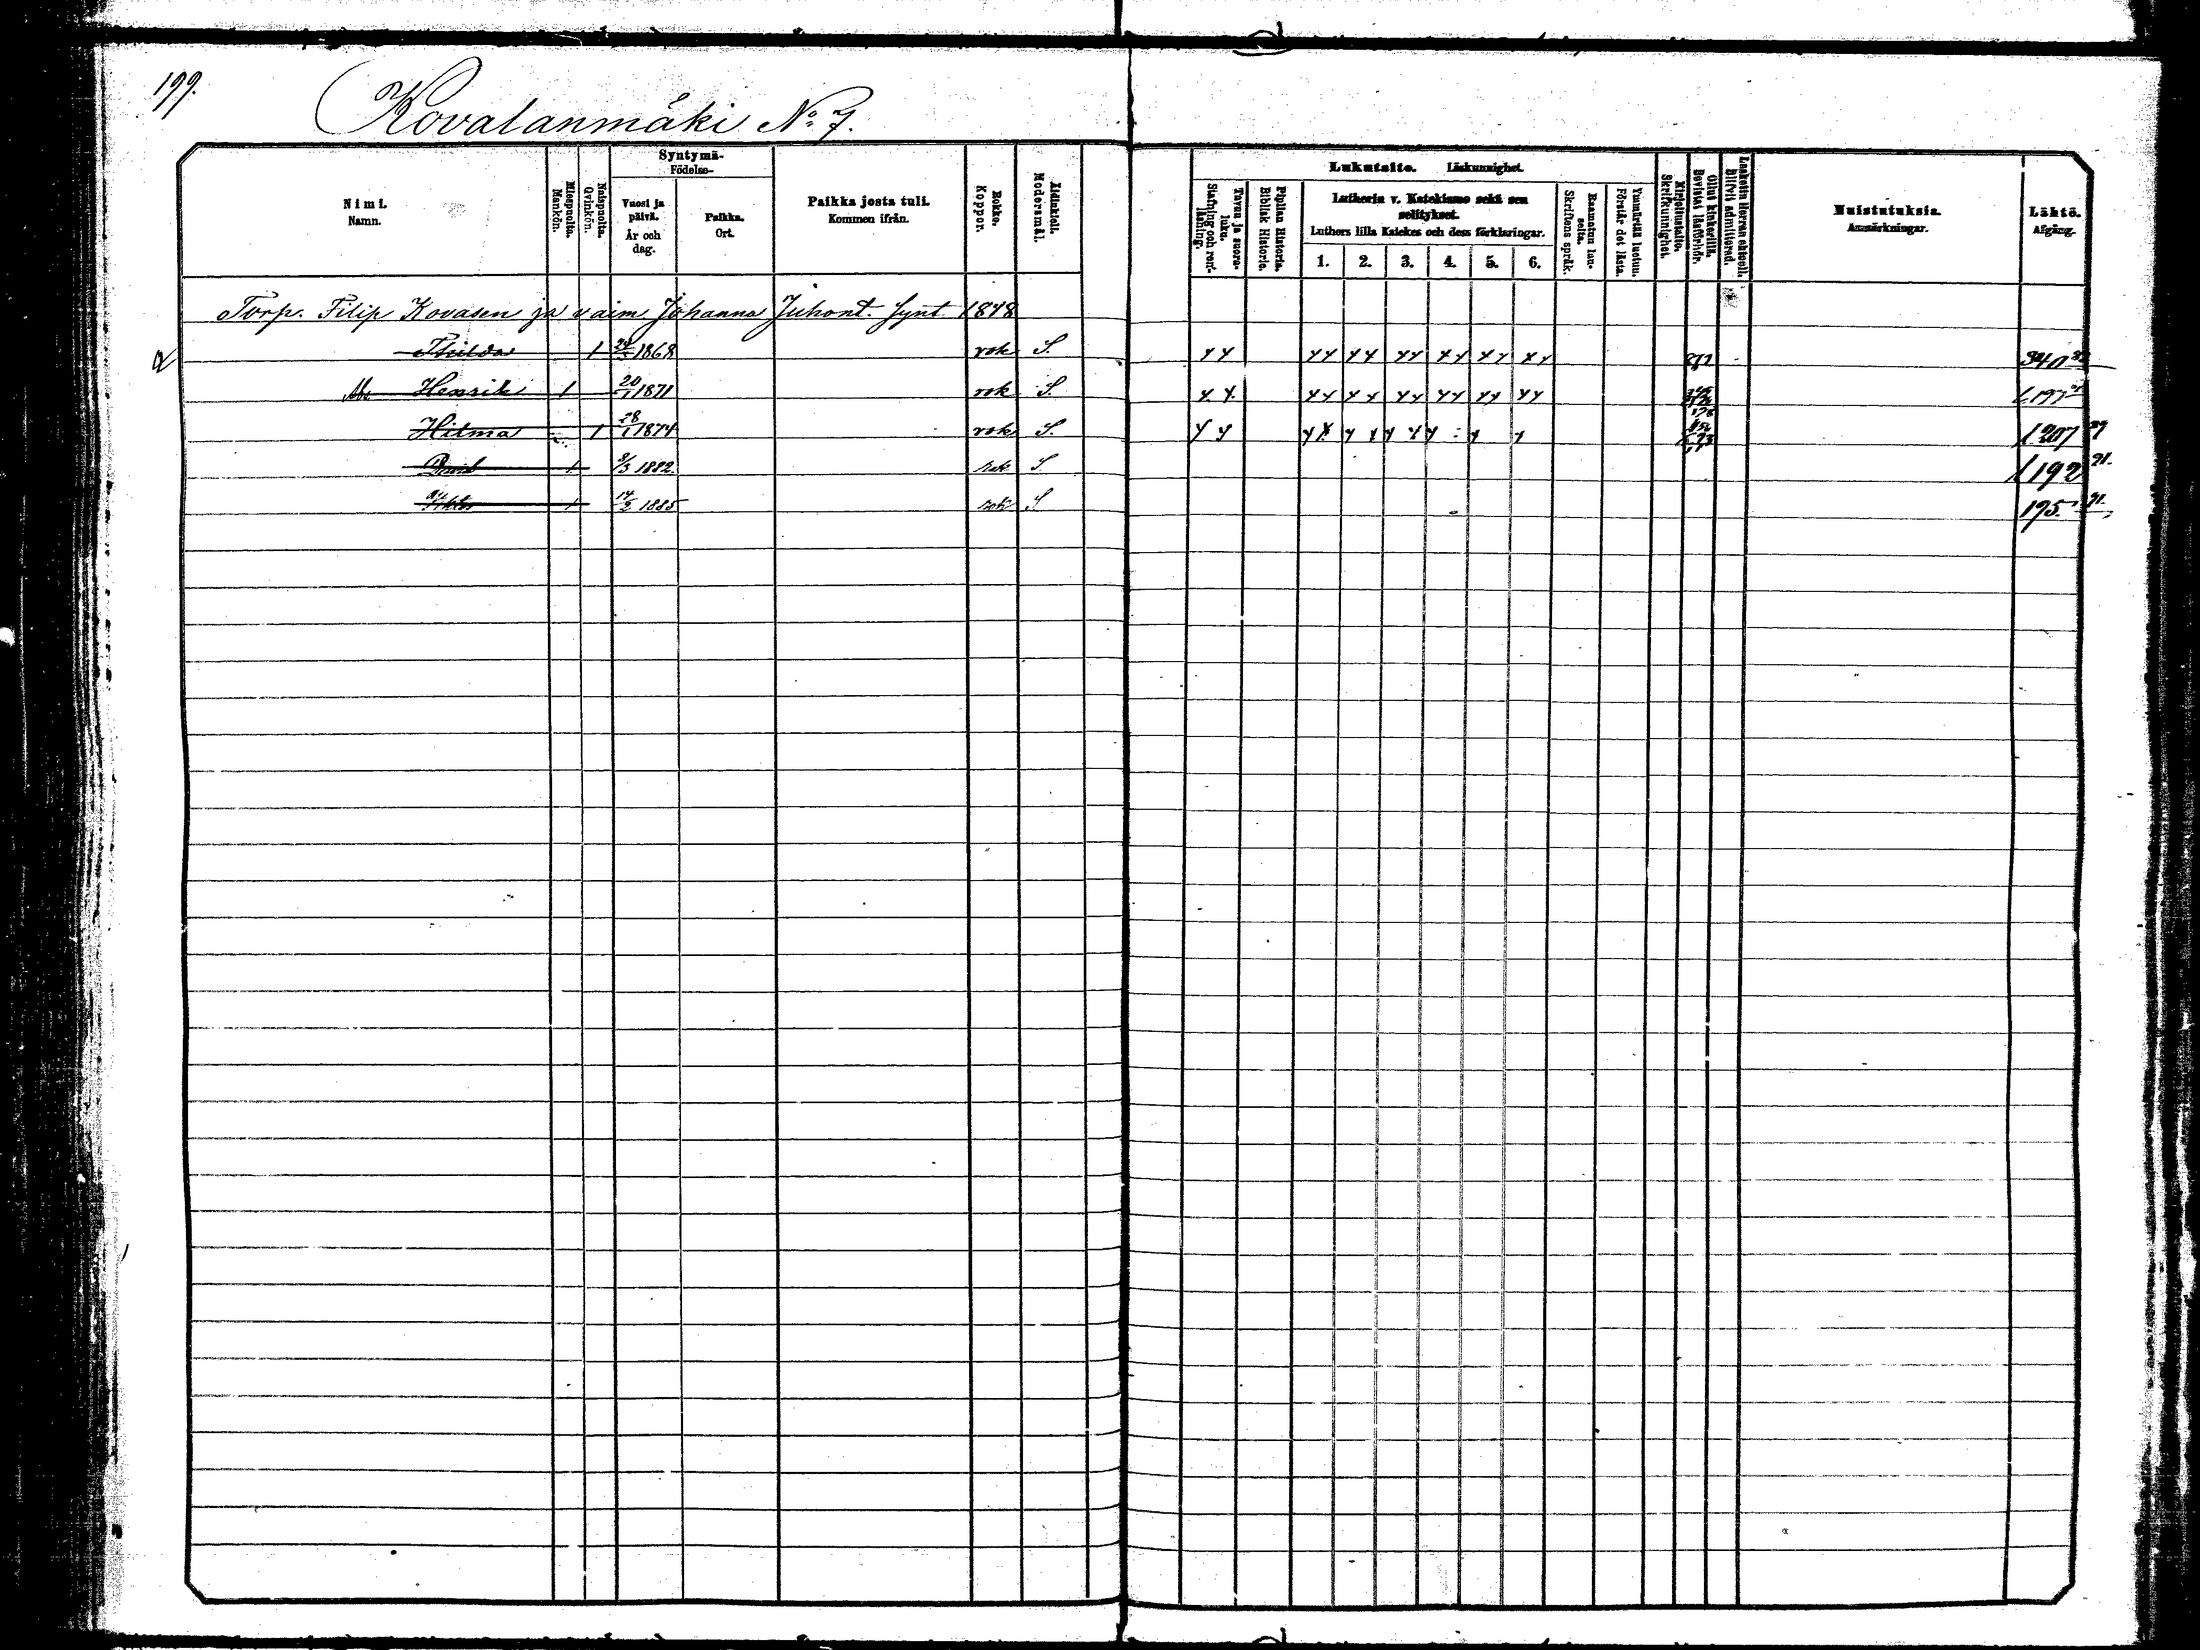 199.
Kovalanmäki No 7.
Nimi. Namn.
Miespuolta. Mankön.
Naispuolta. Qvinkön.
Syntymä- Födelse-
Vuosi ja päivä. År och dag.
Paikka. Ort.
Paikka josta tuli. Kommen ifrån.
Rokko. Koppor.
Äidinkieli. Modersmål.
Tavuu ja suora- luku. Stafning och ren- läsning.
Piplian Historia. Biblisk Historie.
Lukutaito. Läskunnighet.
Lutherin v. Katekismo sekä sen selitykset.
Luthers lilla Katekes och dess förklaringar.
1. 2. 3. 4. 5. 6.
Raamatun lau- seita. Skriftens språk.
Ymmärtää luetun. Förstår det lästa.
Kirjoitustaito. Skrifkunnighet.
Ollut kinkerillä. Bevistat läsförhör.
Laskettu Herran ehtooll. Blifvit admitterad.
Muistutuksia. Anmärkningar.
Lähtö. Afgång.
Torp. Filip Kovasen ja vaim. Johanna Juhont. synt 1848
1 1868 rok S. 340
Henrik 1 20/1 1871 rok S. 197
Hilma 1 28/1 1874 rok S. 207
1 3/3 1882. rok S 192 91.
1 14/2 1885 rok S 195. 91.